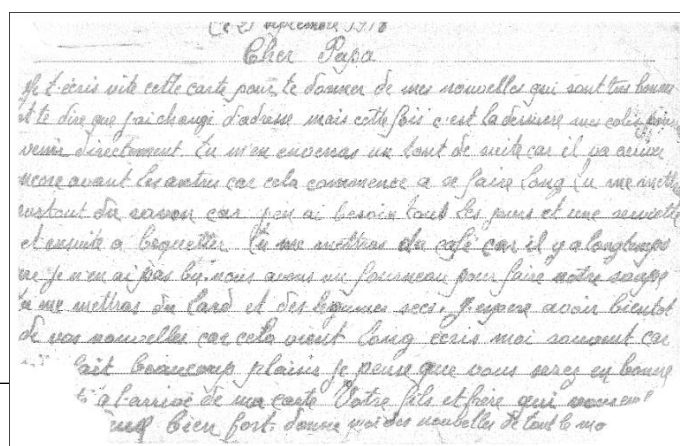 Le 21 septembre 1918
Cher Papa
Je t'écris vite cette carte pour te donner de mes nouvelles qui sont tres bonnes
et te dire que j'ai changé d'adresse mais cette fois c'est la derniere mes colis
venir directement tu m'en enverras un tout de suite car il va arriver
encore avant les autres car cela commence a se faire long tu me mettras
surtout du savon car j'en ai besoin tout les jours et une serviette
et ensuite a becquetter tu me mettras du café car il y a longtemps
que je n'en ai pas bu. nous avons un fourneau pour faire notre soupe
tu me mettras du lard et des legumes secs. J'espere avoir bientot
de vos nouvelles car cela vient long écris moi souvent car
fait beaucoup plaisir je pense que vous serez en bonne
a l'arrivé de ma carte Votre fils et frère qui vous
bien fort. donne moi des nouvelles de tout le mo